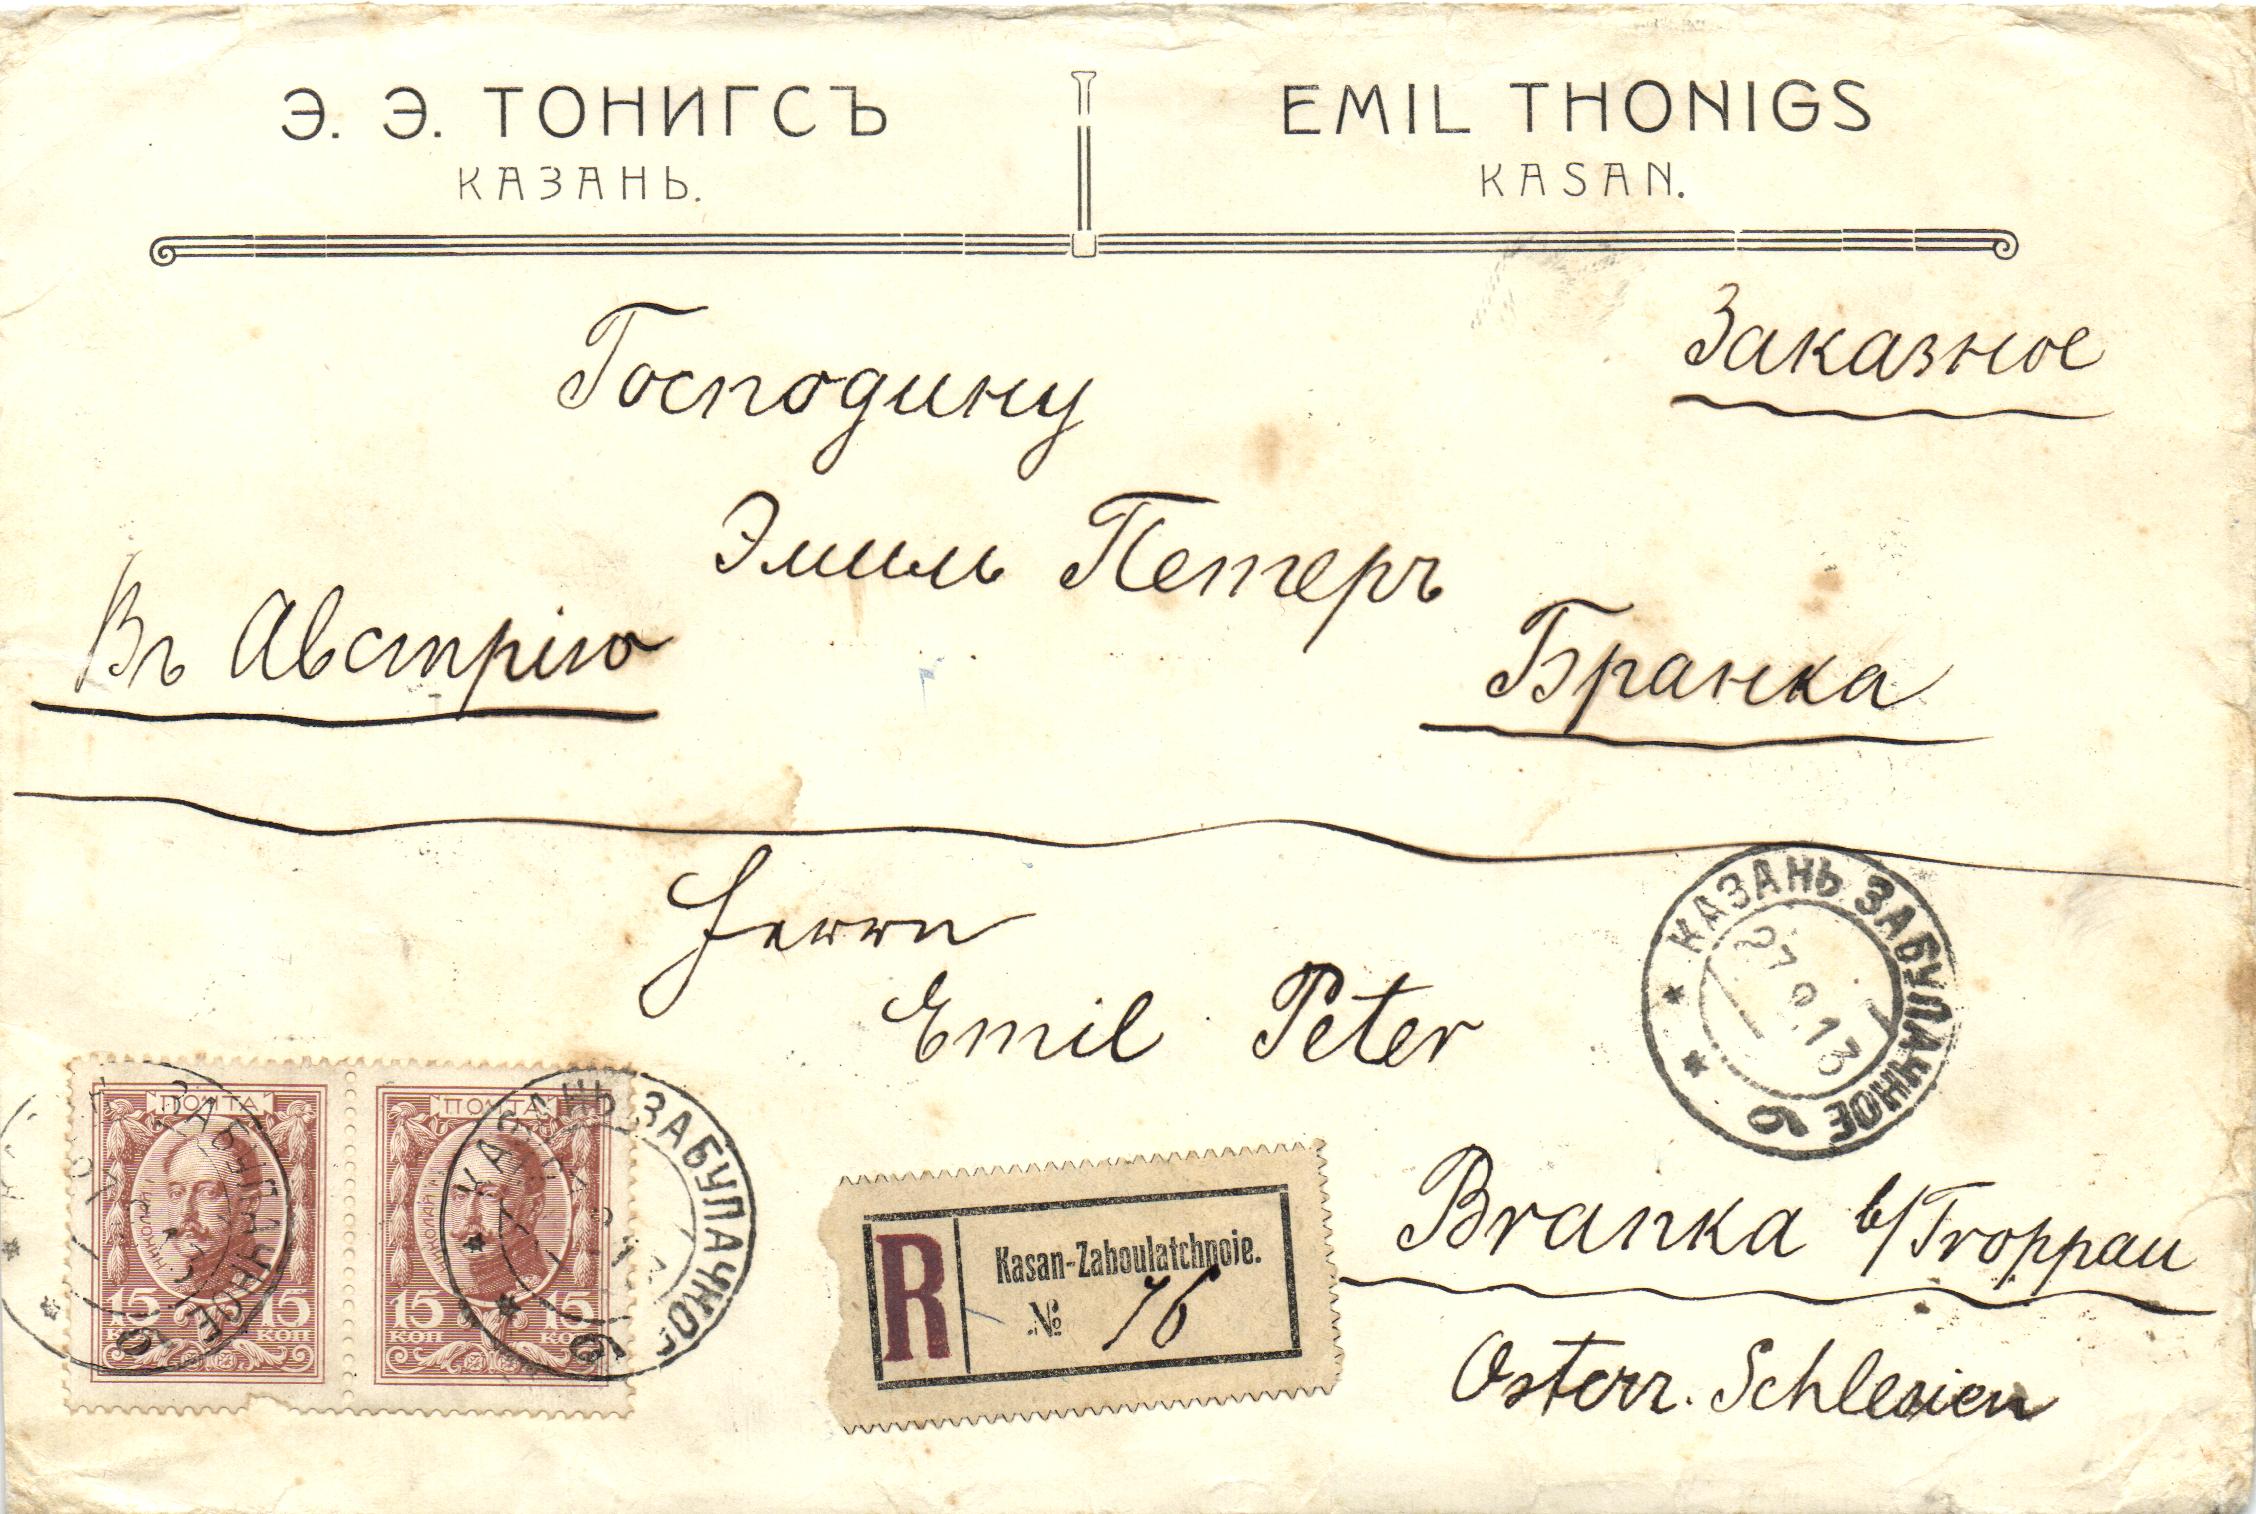 Э. Э. ТОНИГСЪ
КАЗАНЬ.
EMIL THONIGS
KASAN.
Заказное
Господину
Эмиль Петеръ
Въ Австрію
Бранка
Herrn
Emil Peter
КАЗАНЬ ЗАБУЛАЧНОЕ
27 9 13
б
Branka b/Troppau
Österr. Schlesien
R
Kasan-Zaboulatchnoie.
№ 76
ПОЧТА
НИКОЛАЙ II
15 15
КОП КОП
ЗАБУЛАЧНОЕ
б
ПОЧТА
НИКОЛАЙ II
15 15
КОП КОП
КАЗАНЬ ЗАБУЛАЧНОЕ
б